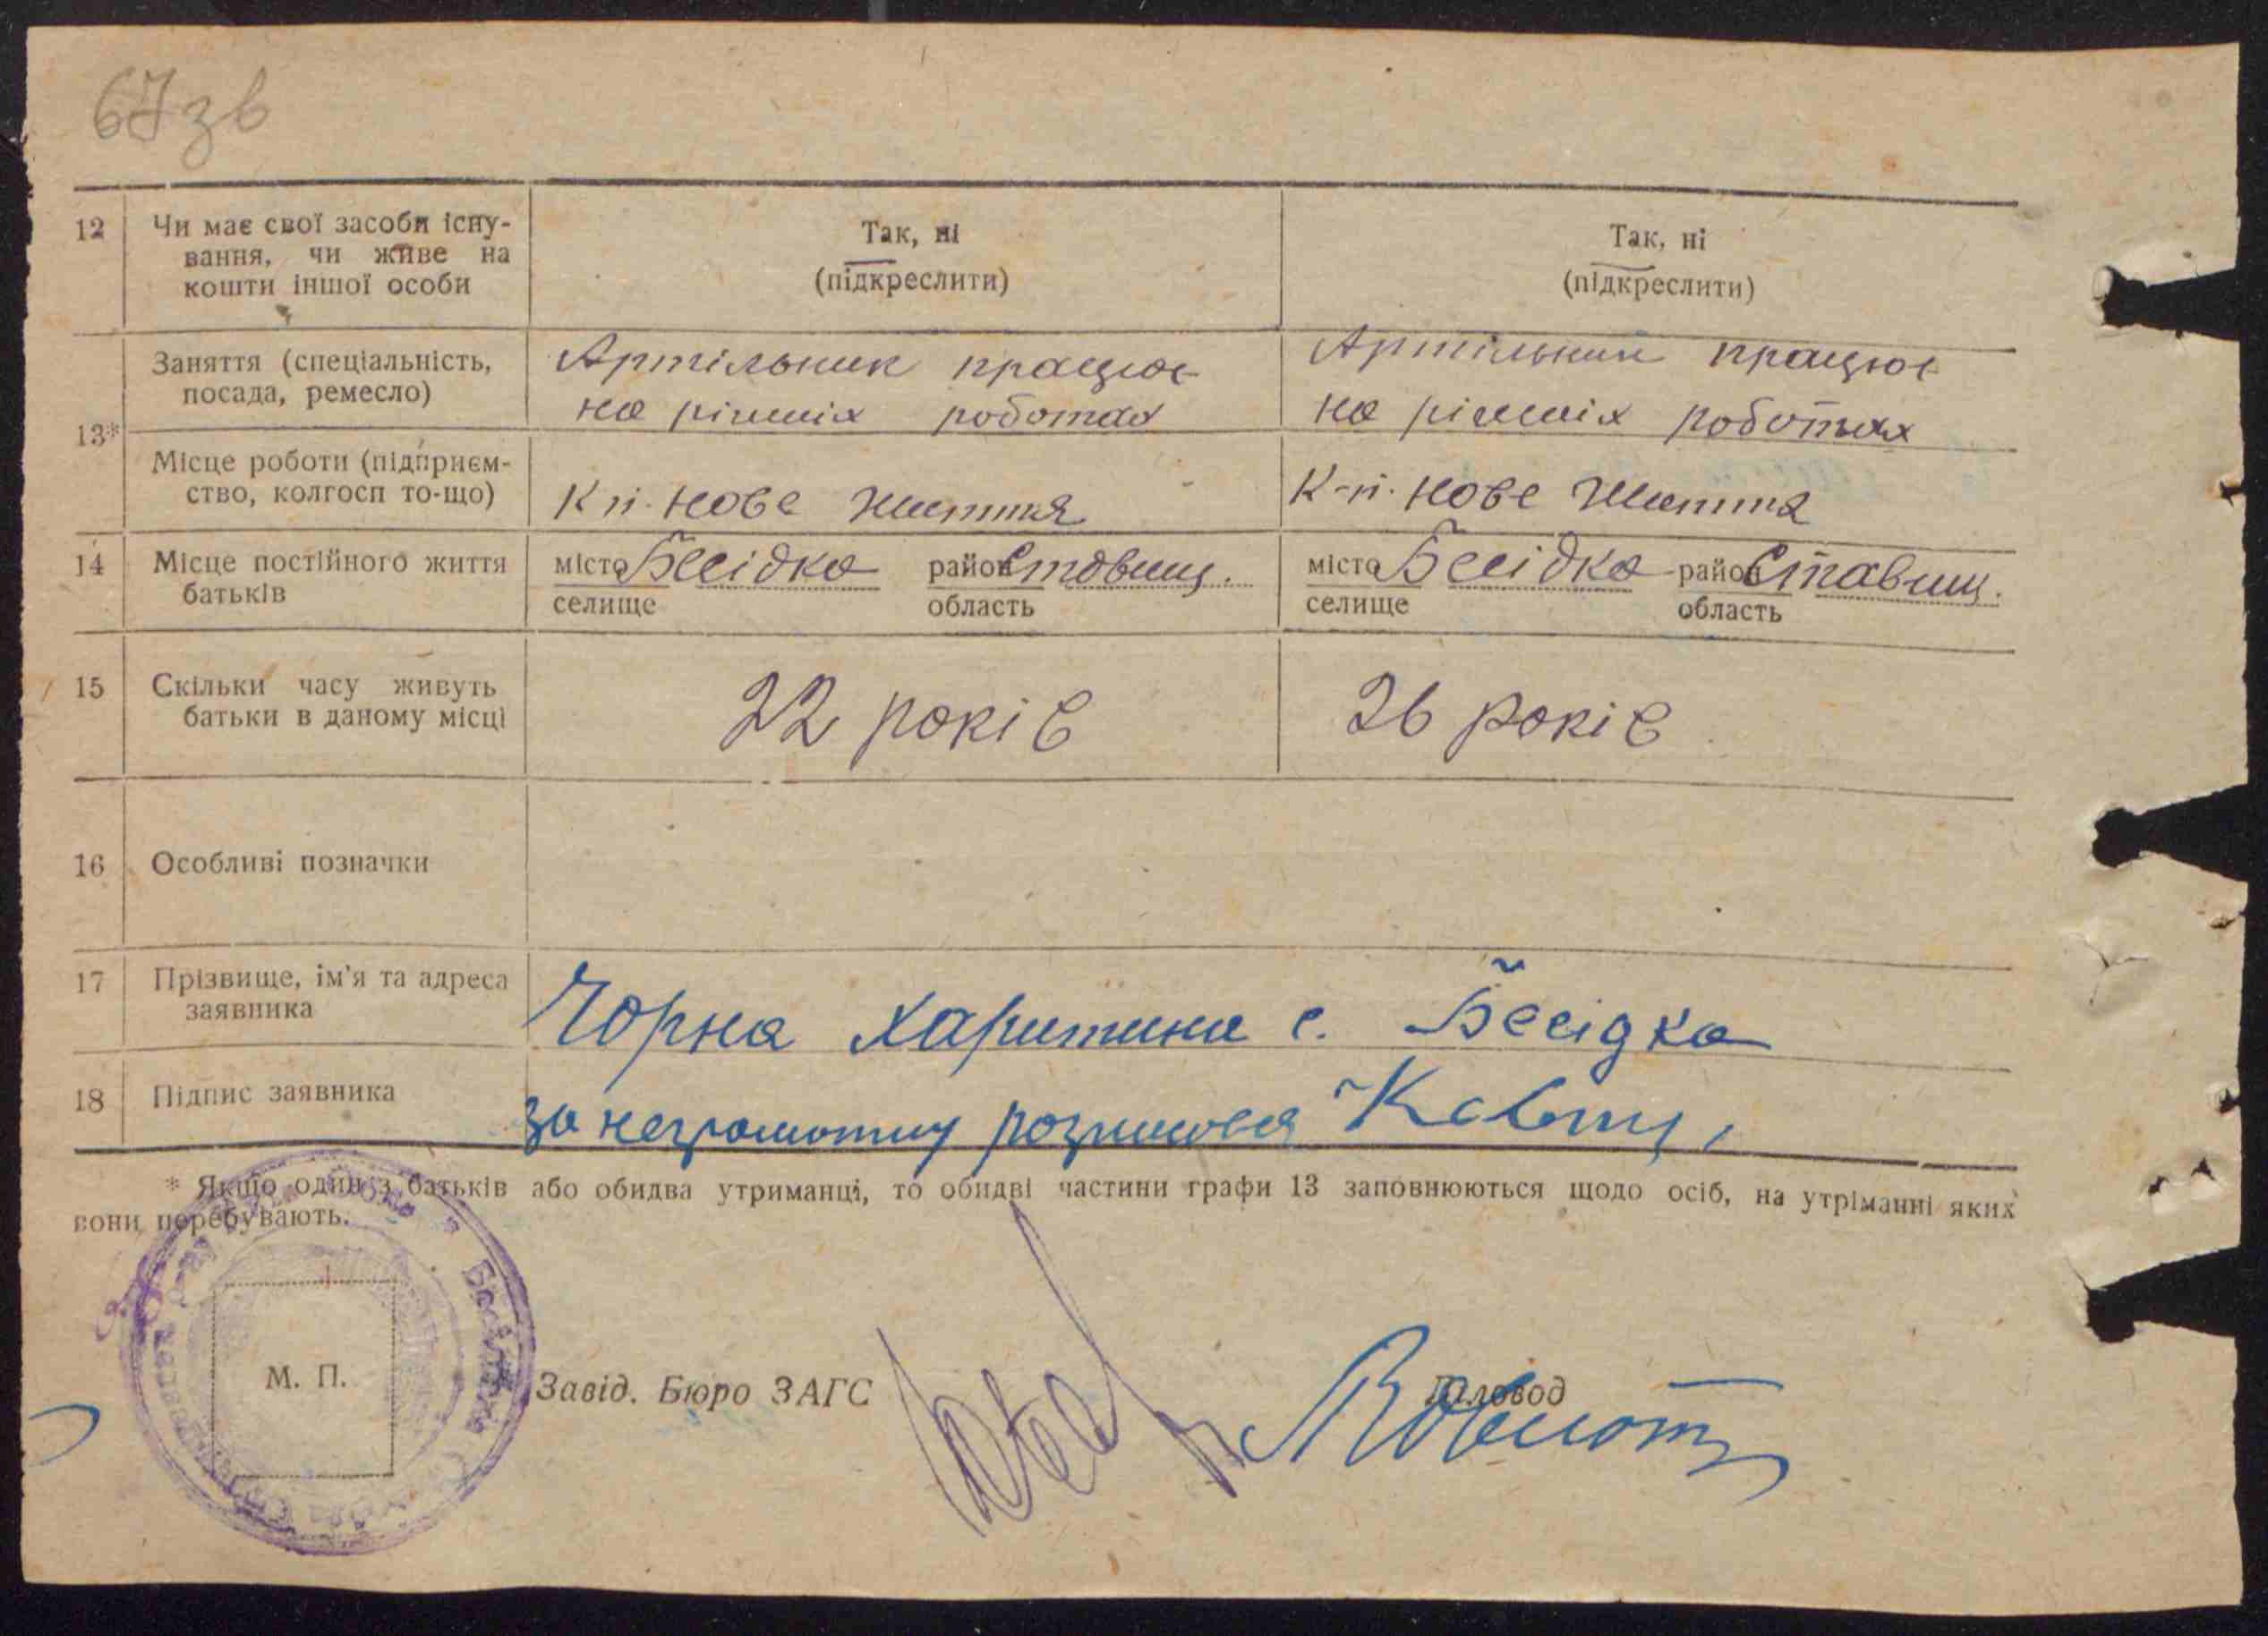 67зв
12 Чи має свої засоби існу- Так, ні Так, ні
вання, чи живе на (підкреслити) (підкреслити)
кошти іншої особи
13* Заняття (спеціальність, Артільник працює Артільник працює
посада, ремесло) на різних роботах на різних роботах
Місце роботи (підприєм- К-п. Нове Життя К-п. Нове Життя
ство, колгосп то-що)
14 Місце постійного життя місто Бесідка район Ставищ. місто Бесідка район Ставищ.
батьків селище область селище область
15 Скільки часу живуть 22 років 26 років
батьки в даному місці
16 Особливі позначки
17 Прізвище, ім'я та адреса Чорна Харитина с. Бесідка
заявника
18 Підпис заявника за неграмотну розписався
* Якщо один з батьків або обидва утриманці, то обидві частини графи 13 заповнюються щодо осіб, на утріманні яких
вони перебувають.
М. П. Завід. Бюро ЗАГС Діловод